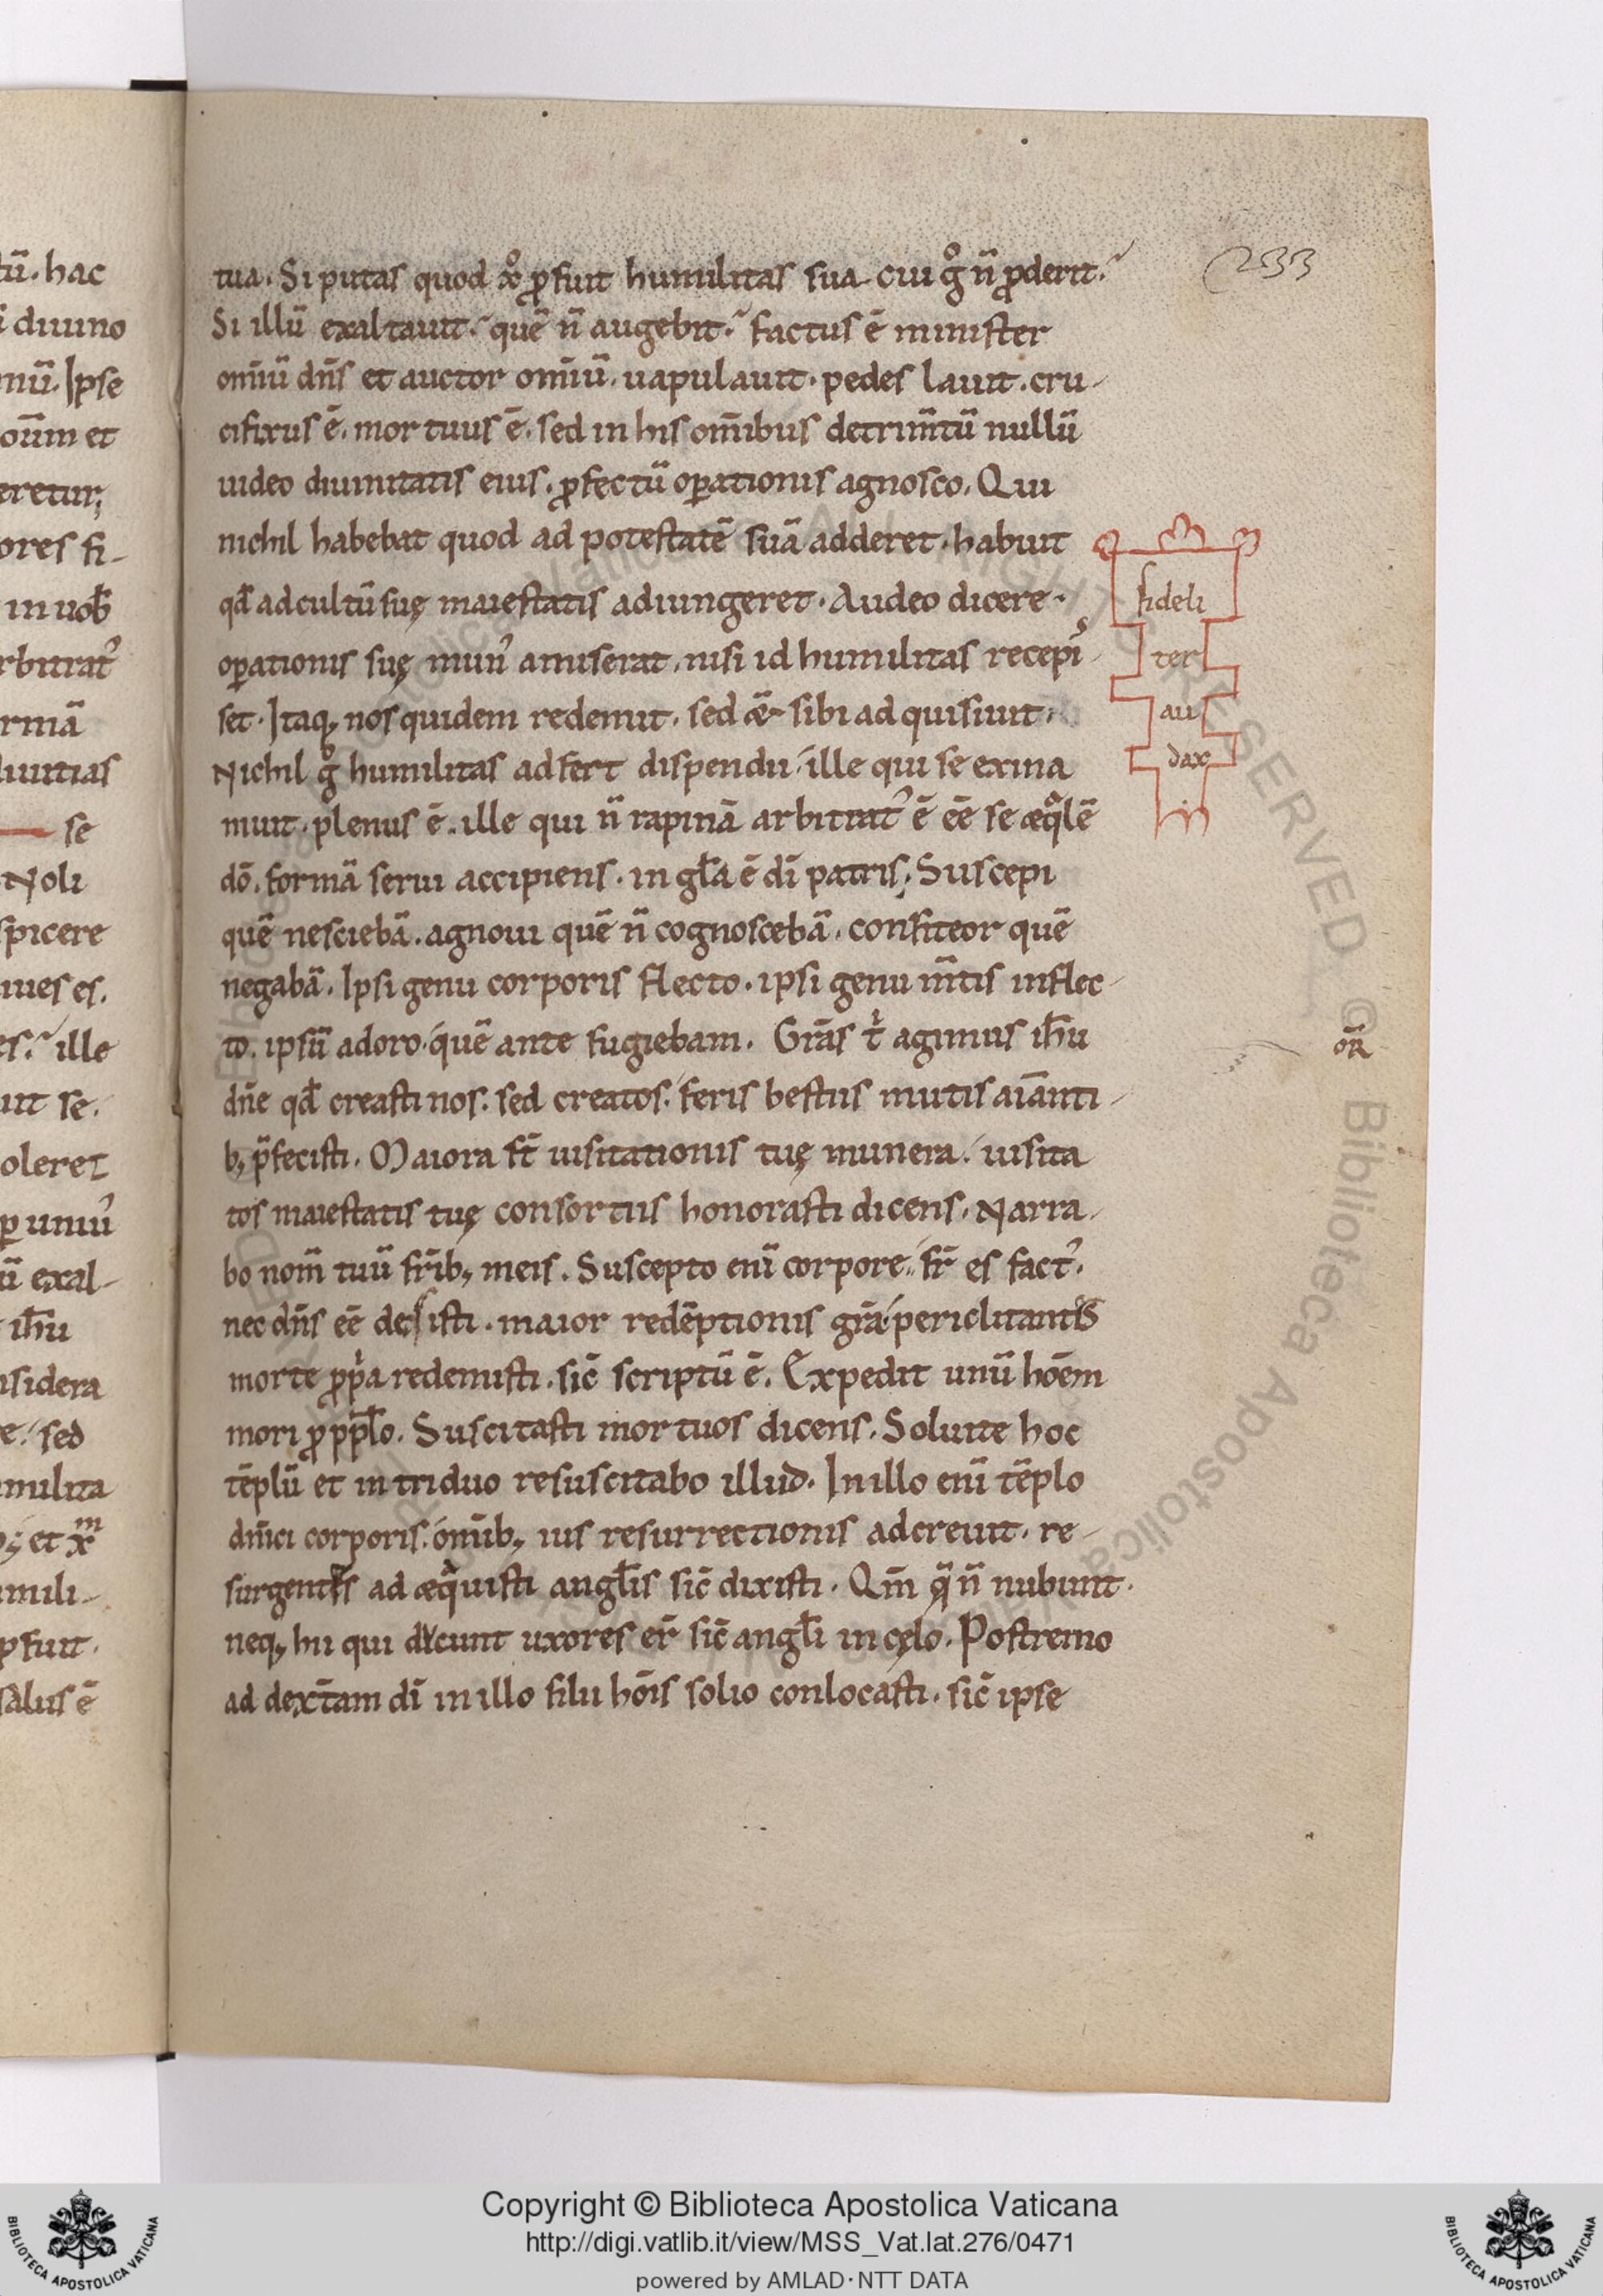 tũ. hac
ĩ diuino
nũ. Ipse
oũm et
eretur;
ores fi-
in uob̃
rbitrat᾽
rmã
diuitias
se
Noli
spicere
iues es.
es. ille
uit se.
oleret
ꝑ uniũ
ũ exal-
ih̃u
nsidera
e. sed
milita
et xᵐ
mili-
ꝓfuit.
salus ẽ
233
tua. Si putas quod xͦ ꝓfuit humilitas sua. cui gͦ ñ ꝓderit.
Si illũ exaltauit. quẽ ñ augebit. factus ẽ minister
om̃iũ dñs et auctor om̃iũ. uapulauit. pedes lauit. cru-
cifixus ẽ. mortuus ẽ. sed in his om̃ibus detrim̃tũ nullũ
uideo diuinitatis eius. ꝓfectũ oꝑationis agnosco. Qui
nichil habebat quod ad potestatẽ suã adderet. habuit
qđ ad cultũ suę maiestatis adiungeret. Audeo dicere.
oꝑationis suę mun᾽ amiserat. nisi id humilitas recepis-
set. Itaq, nos quidem redemit. sed & sibi adquisiuit.
Nichil gͦ humilitas adfert dispendii. ille qui se exina
niuit. plenus ẽ. ille qui ñ rapinã arbitrat᾽ ẽ eẽ se æqᵃlẽ
dõ. formã serui accipiens. in gl̃a ẽ dĩ patris. Suscepi
quẽ nesciebã. agnoui quẽ ñ cognoscebã. confiteor quẽ
negabã. Ipsi genu corporis flecto. ipsi genu m̃tis inflec-
to. ipsũ adoro. quẽ ante fugiebam. Grãs tⁱ agimus ih̃u
dñe qđ creasti nos. sed creatos. feris bestiis mutis aiãnti-
b, p̃fecisti. Maiora st̃ uisitationis tuę munera. uisita
tos maiestatis tuę consortiis honorasti dicens. Narra-
bo nom̃ tuũ fr̃ib, meis. Suscepto enĩ corpore. fr̃ es fact᾽.
nec dñs eẽ desisti. maior redẽptionis gr̃a. periclitantes
morte ꝓpⁱa redemisti. sic̃ scriptũ ẽ. Expedit unũ hoẽm
mori ꝓ ppl̃o. Suscitasti mortuos dicens. Soluite hoc
tẽplũ et in triduo resuscitabo illud. In illo enĩ tẽplo
dñici corporis. om̃ib, ius resurrectionis adcreuit. re-
surgentes ad æqᵃuisti angl̃is sic̃ dixisti. Qm̃ qᵃ ñ nubunt.
neq, hii qui ducunt uxores er̃ sic̃ angl̃i in cęlo. Postremo
ad dext̃am dĩ in illo filii hõis solio conlocasti. sic̃ ipse
fideli
ter
au
dax
or̃
Copyright © Biblioteca Apostolica Vaticana
http://digi.vatlib.it/view/MSS_Vat.lat.276/0471
powered by AMLAD·NTT DATA
BIBLIOTECA APOSTOLICA VATICANA
BIBLIOTECA APOSTOLICA VATICANA